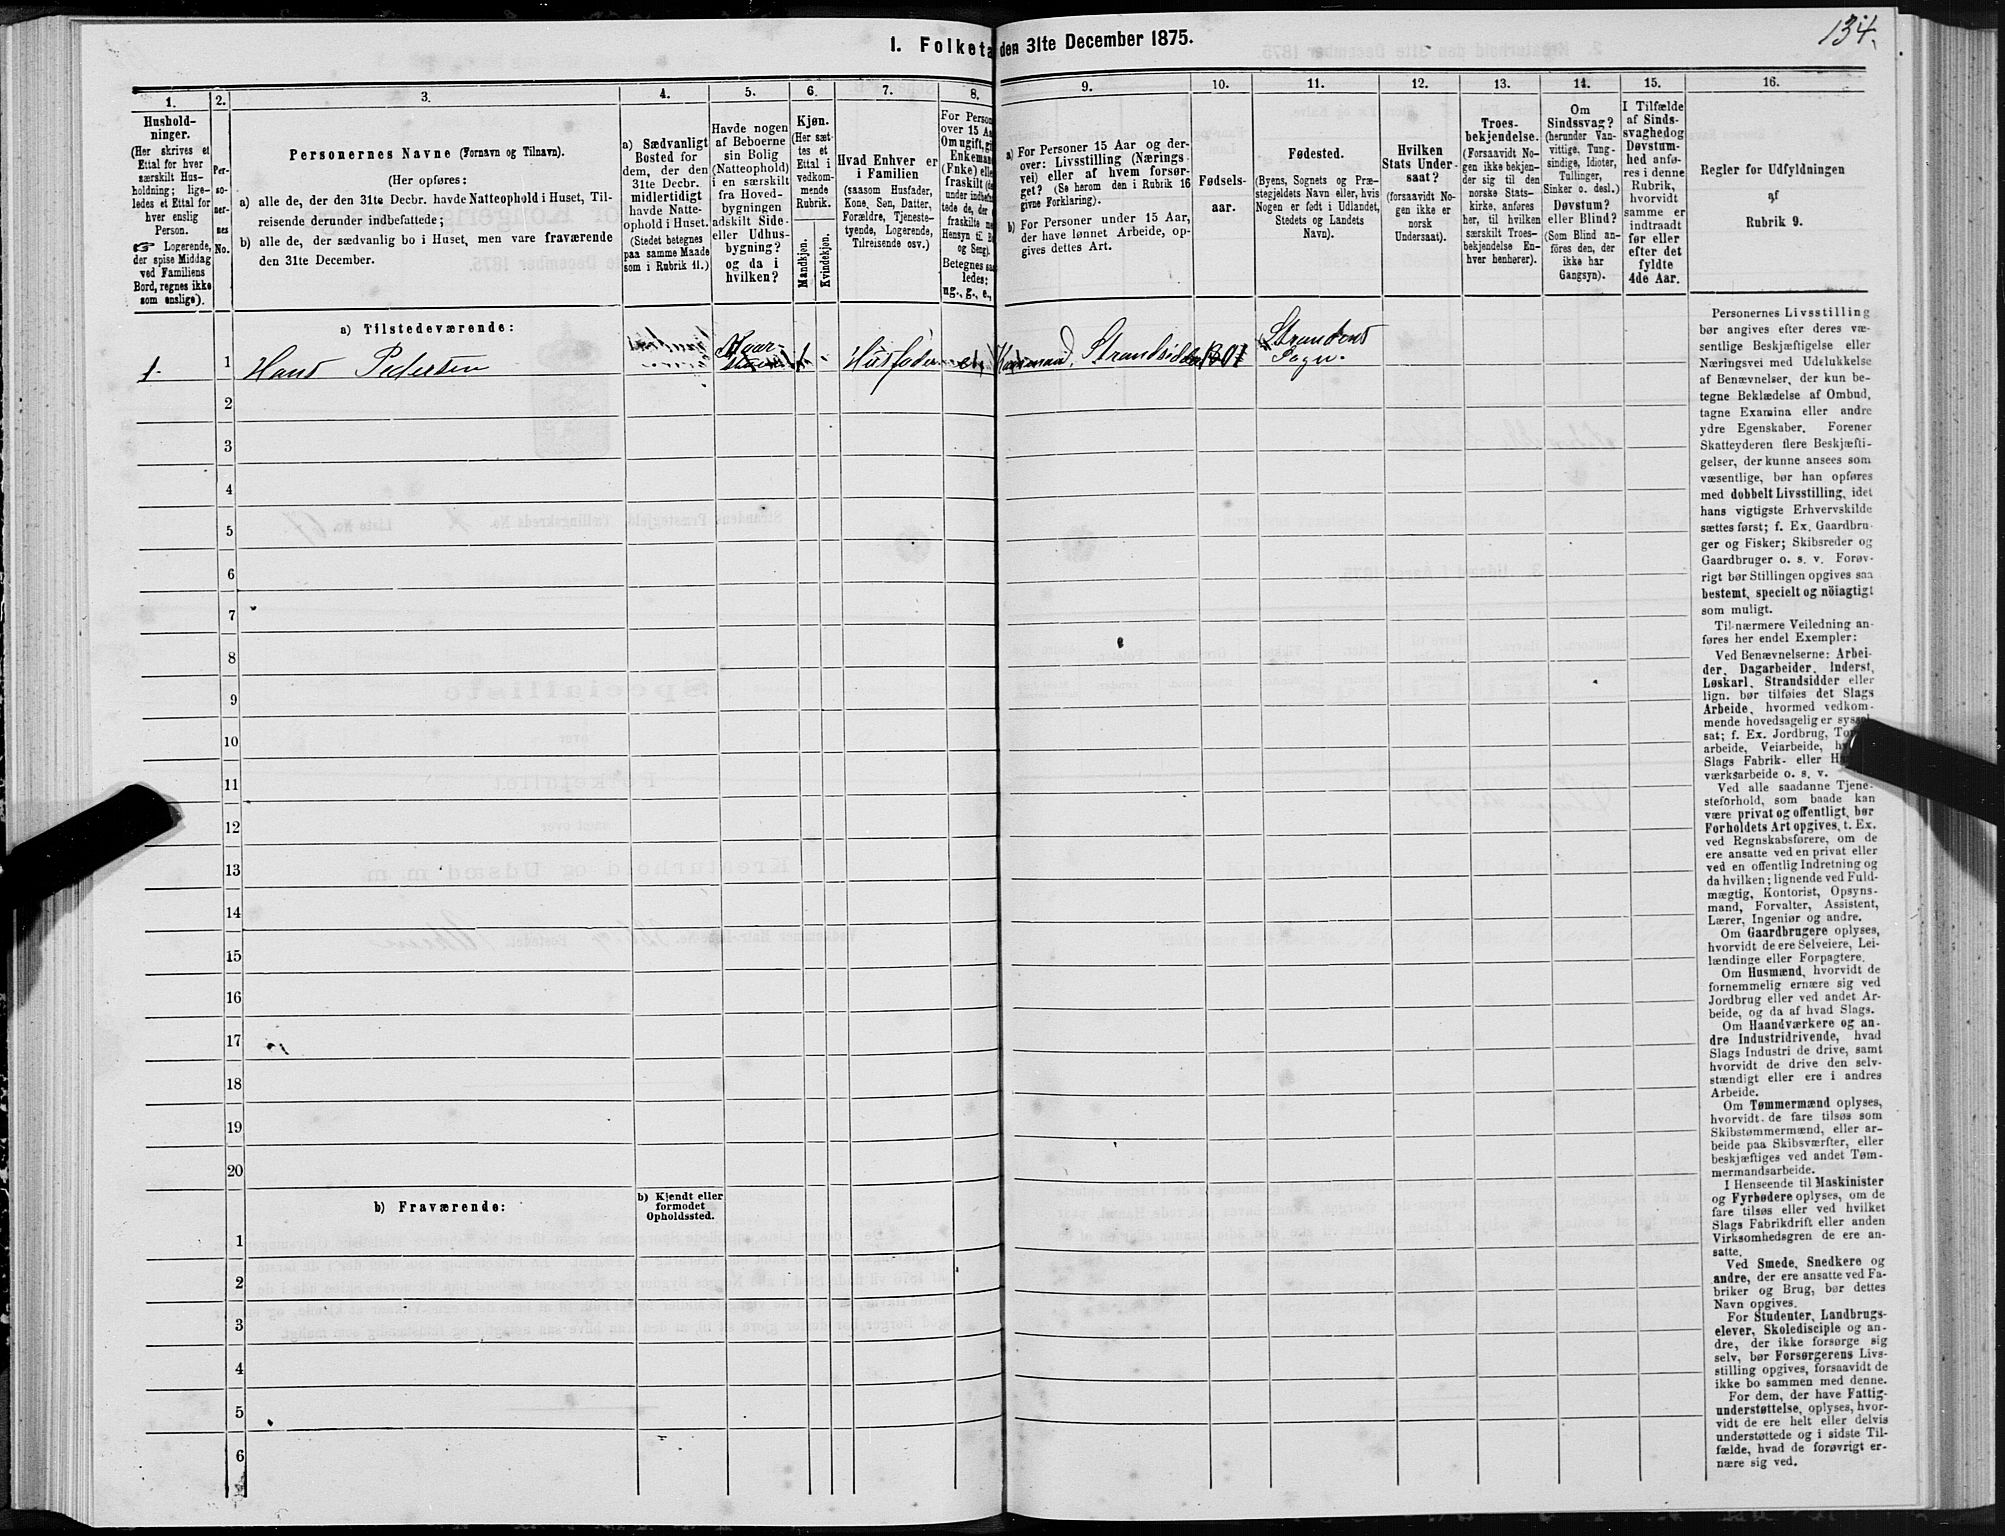 134.
I. Folketa den 31te December 1875.
1.
2.
3.
4.
5.
6.
7.
8.
9.
10.
11.
12.
13.
14.
15.
16.
Hushold-
ninger.
(Her skrives et
Ettal for hver
særskilt Hus-
holdning; lige-
ledes et Ettal for
hver enslig
Person.
☞ Logerende,
der spise Middag
ved Familiens
Bord, regnes ikke
som enslige).
Per-
so-
ner-
nes
No.
Personernes Navne (Fornavn og Tilnavn).
(Her opføres:
a) alle de, der den 31te Decbr. havde Natteophold i Huset, Til-
reisende derunder indbefattede;
b) alle de, der sædvanlig bo i Huset, men vare fraværende
den 31te December.
a) Sædvanligt
Bosted for
dem, der den
31te Decbr.
midlertidigt
havde Natte-
ophold i Huset.
(Stedet betegnes
paa samme Maade
som i Rubrik 11.)
Havde nogen
af Beboerne
sin Bolig
(Natteophold)
i en særskilt
fra Hoved-
bygningen
adskilt Side-
eller Udhus-
bygning?
og da i
hvilken?
Kjøn.
(Her sæt-
tes et
Ettal i
vedkom-
mende
Rubrik.
Mandkjøn.
Kvindekjøn.
Hvad Enhver er
i Familien
(saasom Husfader,
Kone, Søn, Datter,
Forældre, Tjeneste-
tyende, Logerende,
Tilreisende osv.)
For Person
over 15 Aa
Om ugift, gi
Enkeman
(Fnke) elle
fraskilt (de
under indbefat-
tede de, der
fraskilte me
Hensyn til Bo
og Seng).
Betegnes saa
ledes:
ug., g., e.,
a) For Personer 15 Aar og der-
over: Livsstilling (Nærings-
vei) eller af hvem forsør-
get? (Se herom den i Rubrik 16
givne Forklaring).
b) For Personer under 15 Aar,
der have lønnet Arbeide, op-
gives dettes Art.
Fødsels-
aar.
Fødested.
(Byens, Sognets og Præ-
stegjeldets Navn eller, hvis
Nogen er født i Udlandet,
Stedets og Landets
Navn).
Hvilken
Stats Under-
saat?
(forsaavidt No-
gen ikke er
norsk
Undersaat).
Troes-
bekjendelse.
(Forsaavidt No-
gen ikke bekjen-
der sig til den
norske Stats-
kirke, anføres
her, til hvilken
særskilt Troes-
bekjendelse En-
hver henhører).
Om
Sindssvag?
(herunder Van-
vittige, Tung-
sindige, Idioter,
Tullinger,
Sinker o. desl.)
Døvstum?
eller Blind?
(Som Blind an-
føres den, der
ikke har
Gangsyn).
I Tilfælde
af Sinds-
svaghed og
Døvstum-
hed anfø-
res i denne
Rubrik,
hvorvidt
samme er
indtraadt
før eller
efter det
fyldte
4de Aar.
Regler for Udfyldningen
af
Rubrik 9.
a) Tilstedeværende:
1. 1 Hans Pedersen Husfader Strandsidder 1801 Strandens Sogn.
2
3
4
5
6
7
8
9
10
11
12
13
14
15
16
17
18
19
20
b) Fraværende:
b) Kjendt eller
formodet
Opholdssted.
1
2
3
4
5
6
Personernes Livsstilling
bør angives efter deres væ-
sentlige Beskjæftigelse eller
Næringsvei med Udelukkelse
af Benævnelser, der kun be-
tegne Beklædelse af Ombud,
tagne Examina eller andre
ydre Egenskaber. Forener
Skatteyderen flere Beskjæfti-
gelser, der kunne ansees som
væsentlige, bør han opføres
med dobbelt Livsstilling, idet
hans vigtigste Erhvervskilde
sættes først; f. Ex. Gaardbru-
ger og Fisker; Skibsreder og
Gaardbruger o. s. v. Forøv-
rigt bør Stillingen opgives saa
bestemt, specielt og nöiagtigt
som muligt.
Til nærmere Veiledning an-
føres her endel Exempler:
Ved Benævnelserne: Arbei-
der, Dagarbeider, Inderst,
Løskarl, Strandsidder eller
lign. bør tilføies det Slags
Arbeide, hvormed vedkom-
mende hovedsagelig er syssel-
sat; f. Ex. Jordbrug,
arbeide, Veiarbeide,
Slags Fabrik- eller
værksarbeide o. s. v.
Ved alle saadanne Tjene-
steforhold, som baade kan
være privat og offentligt, bør
Forholdets Art opgives, t. Ex.
ved Regnskabsførere, om de
ere ansatte ved en privat eller
ved en offentlig Indretning og
da hvilken; lignende ved Fuld-
mægtig, Kontorist, Opsyns-
mand, Forvalter, Assistent,
Lærer, Ingeniør og andre.
Om Gaardbrugere oplyses,
hvorvidt de ere Selveiere, Lei-
lændinge eller Forpagtere.
Om Husmænd, hvorvidt de
fornemmelig ernære sig ved
Jordbrug eller ved andet Ar-
beide, og da af hvad Slags.
Om Haandværkere og an-
dre Industridrivende, hvad
Slags Industri de drive, samt
hvorvidt de drive den selv-
stændigt eller ere i andres
Arbeide.
Om Tømmermænd oplyses,
hvorvidt de fare tilsøs som
Skibstømmermænd, eller ar-
beide paa Skibsværfter, eller
beskjæftiges ved andet Tøm-
mermandsarbeide.
I Henseende til Maskinister
og Fyrbødere oplyses, om de
fare tilsøs eller ved hvilket
Slags Fabrikdrift eller anden
Virksomhedsgren de ere an-
satte.
Ved Smede, Snedkere og
andre, der ere ansatte ved Fa-
briker og Brug, bør dettes
Navn opgives.
For Studenter, Landbrugs-
elever, Skoledisciple og an-
dre, der ikke forsørge sig
selv, bør Forsørgerens Livs-
stilling opgives, forsaavidt de
ikke bo sammen med denne.
For dem, der have Fattig-
understøttelse, oplyses, hvor-
vidt de ere helt eller delvis
understøttede og i sidste Til-
fælde, hvad de forøvrigt er-
nære sig ved.